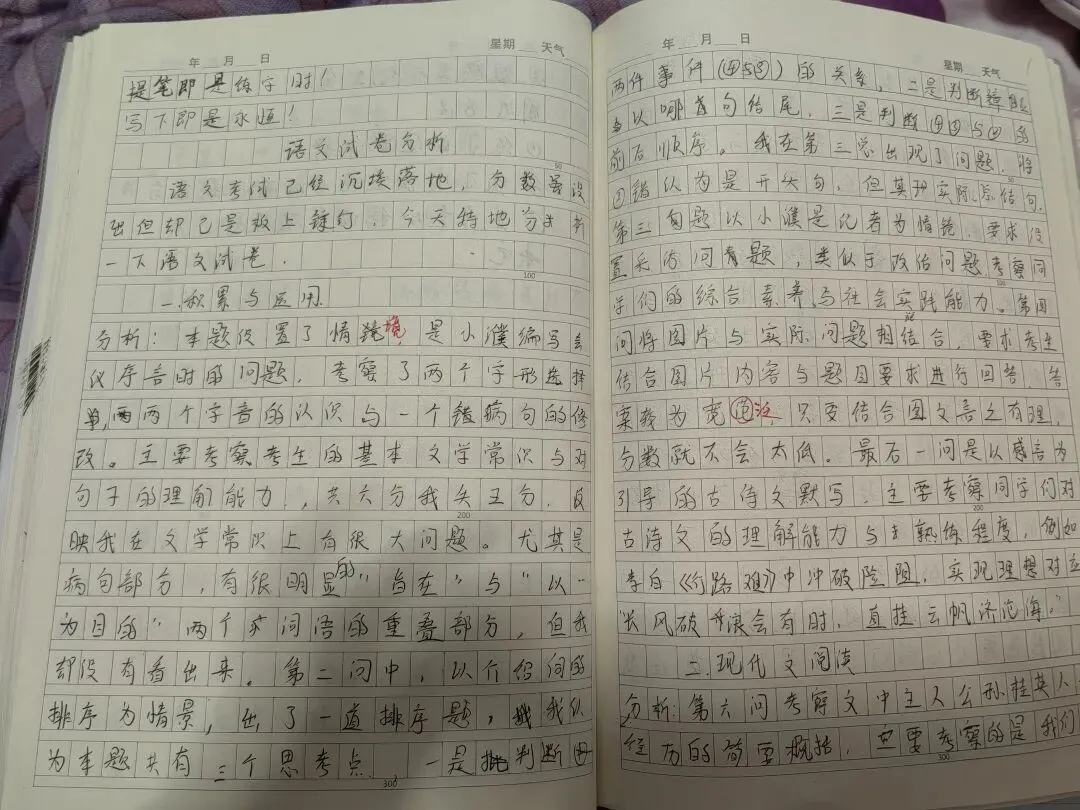 年 月 日 星期 天气
提笔即是练字时！
写下即是永恒！
语文试卷分析
50
语文考试已经尘埃落地，分数虽没
出但却已是板上锤钉．今天特地分析
一下语文试卷．
100
一．积累与运用．
分析：本题设置了情境，是小濮编写会
议序言时的问题．考察了两个字形选择
两个字音的认识与一个错病句的修
改。主要考察考生的基本文学常识与对
句子的理解能力，共六分我失五分．反
200
映我在文学常识上有很大问题。尤其是
病句部分，有很明显的"旨在"与"以…
为目的"两个词语的重叠部分，但我
却没有看出来。第二问中，以介绍间的
排序为情景，出了一道排序题，我认
为本题共有三个思考点．一是判断④
300
年 月 日 星期 天气
两件事件（④⑤⑧）的关系，二是判断
以哪首句结尾．三是判断④①与②的
前后顺序。我在第三总出现了问题．将
②错认为是开头句．但其实际是结句．
第三自题以小濮是记者为情境．要求设
置采访问题，类似于政治问题考察同
100
学们的综合素养与社会实践能力。第四
问将图片与实际问题相结合．要求考生
结合图片内容与题目要求进行回答．答
案较为宽泛，只要结合图文言之有理，
分数就不会太低。最后一问是以感言为
引导的古诗文默写．主要考察同学们对
200
古诗文的理解能力与熟练程度，例如
李白《行路难》中冲破险阻，实现理想对应
"长风破浪会有时，直挂云帆济沧海．"
二．现代文阅读
分析：第六问考察文中主人公孙桂英人
经历的简要概括．主要考察的是我们
300